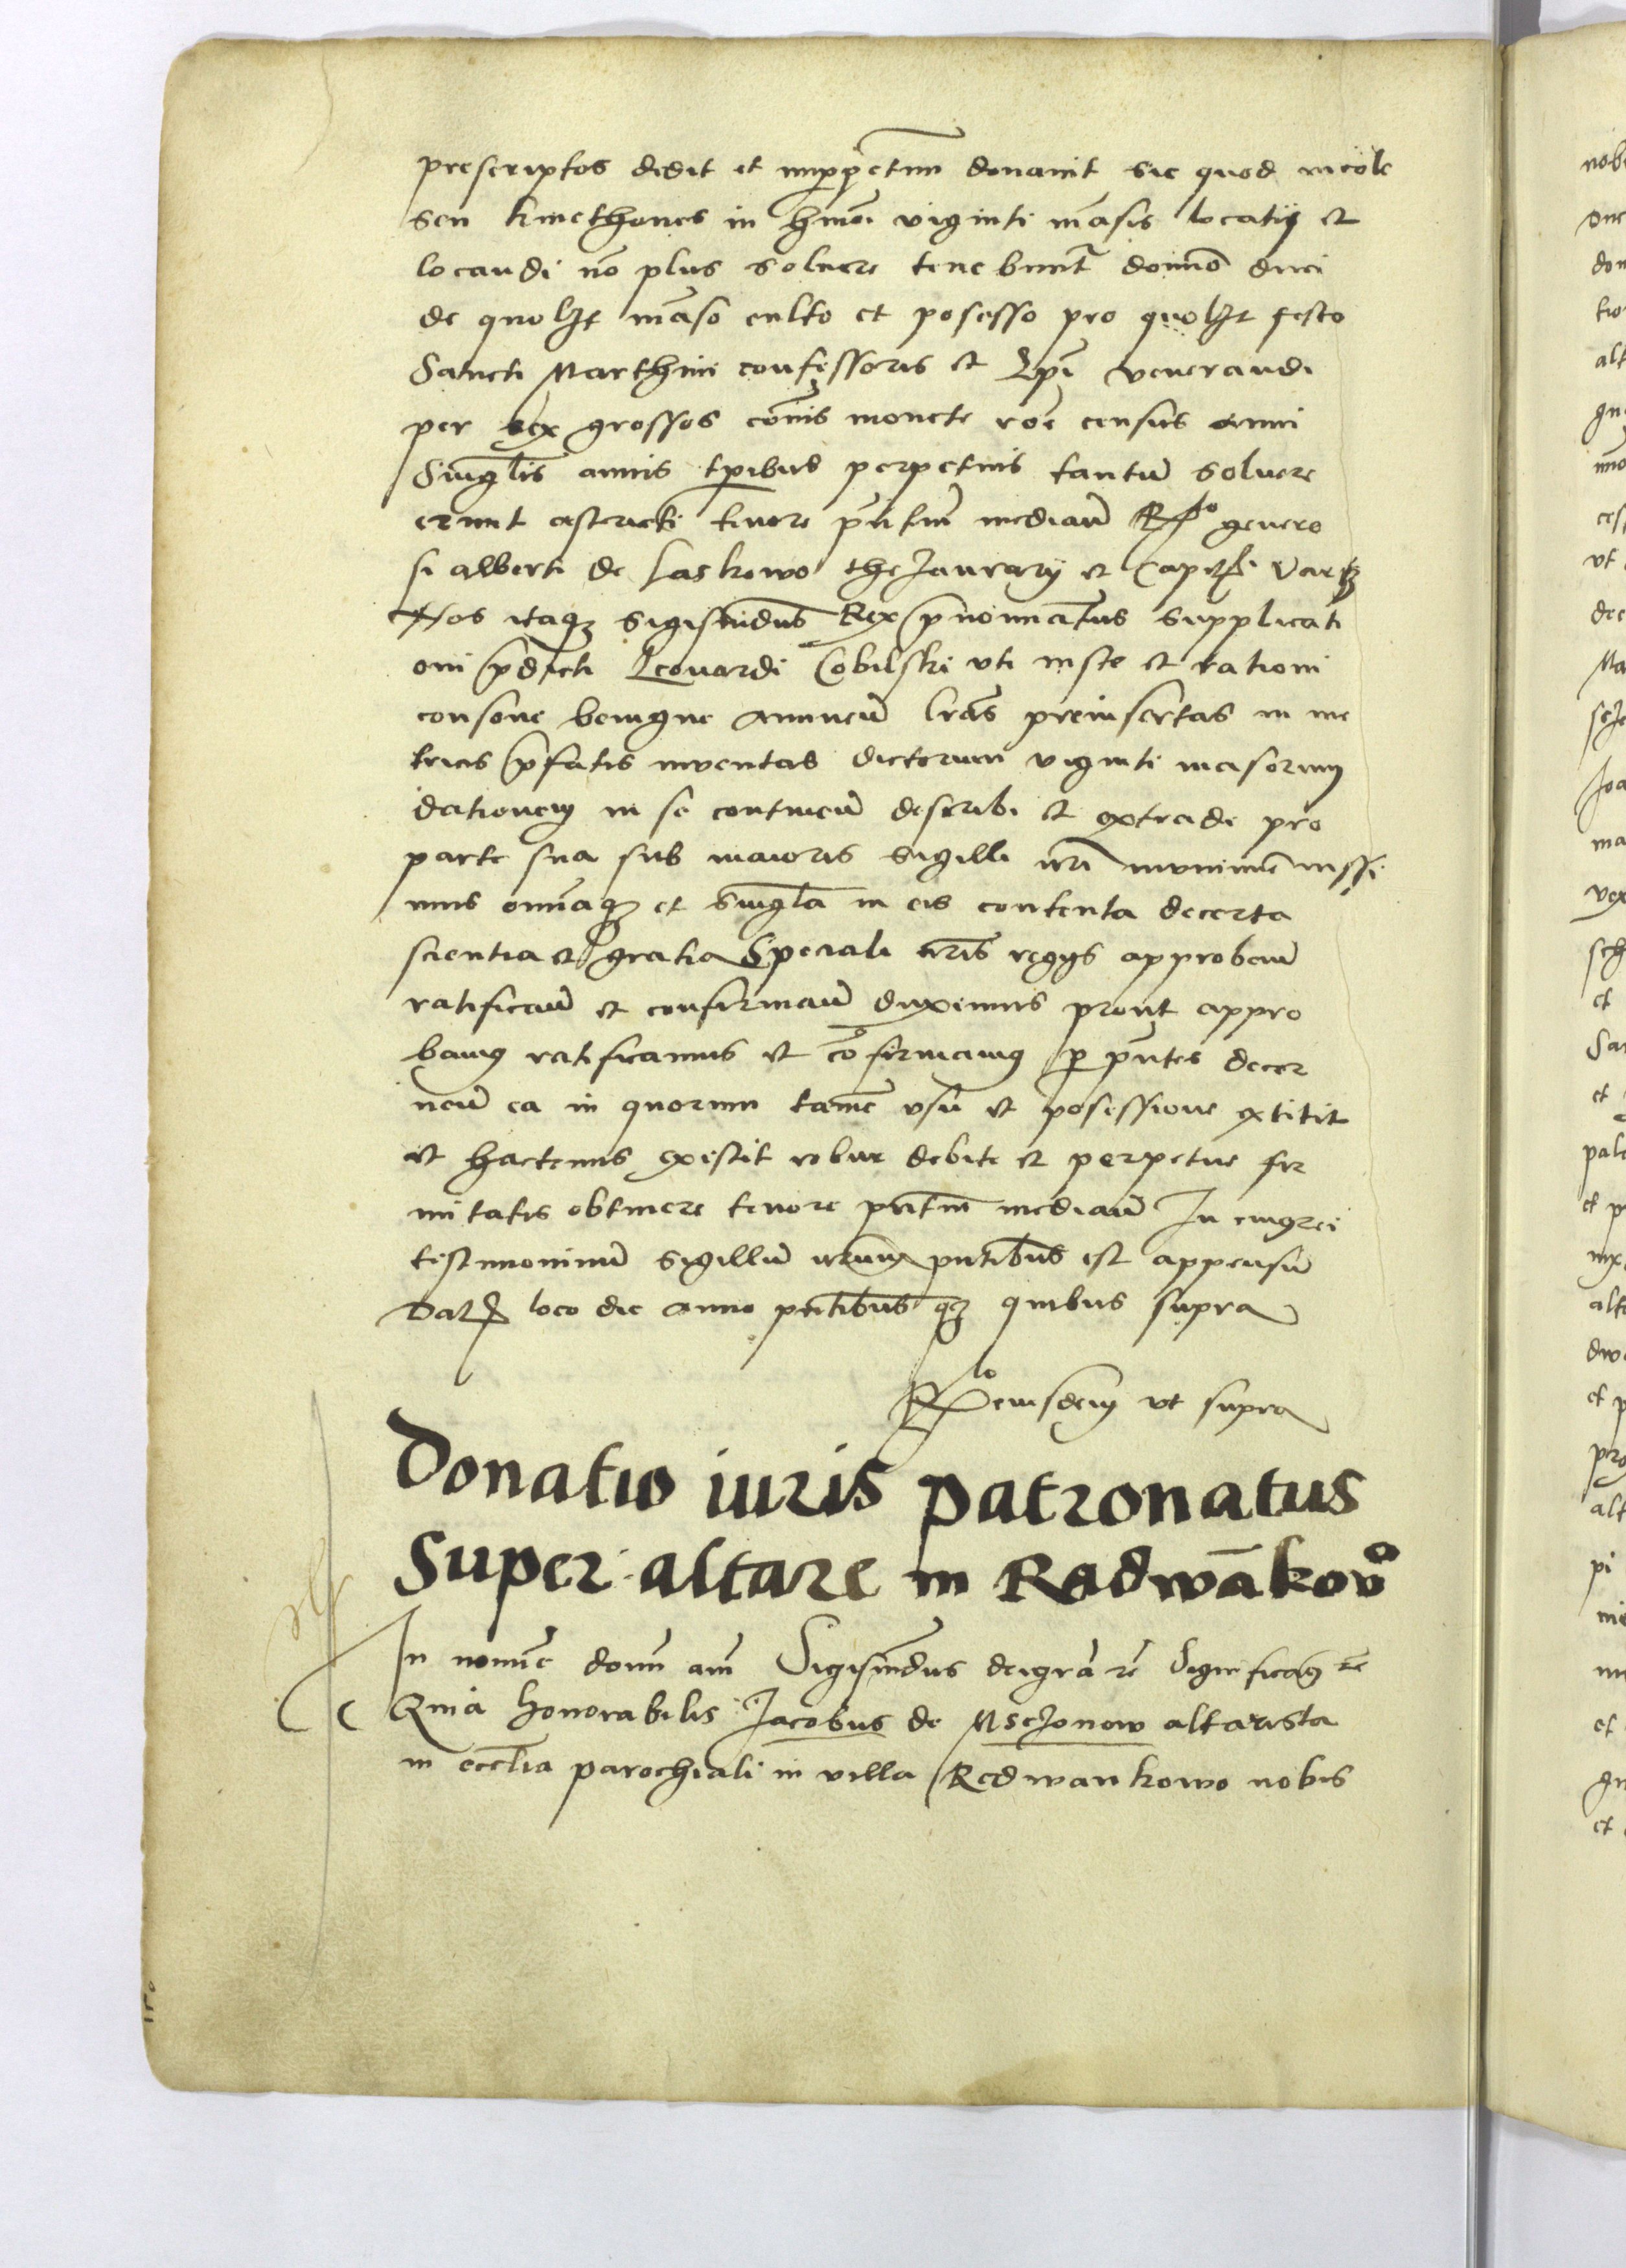 prescriptos dedit et imperpetuum donavit sic quod incole
seu kmethones in hmoi viginti māsis locatis et
locandi nō plus solvere tenebunt̄ domīo duci
de quolibet māso culto et posesso pro quolibet festo
Sancti Marthini confessoris et Epī venerandi
per sex grossos cōīs monete rōe census anni
Singl̄is annis tp̄ibus perpetuis tantum solvere
erunt astricti tenore pn̄tiū mediañ Rlō genero
si alberti de Laskowo thezaurarij et Capitī Varß
Nos itaqȝ Sigismūdus Rex p̄nomīatus supplicati
oni p̄dicti Leonardi Cobilski uti iuste et rationi
consone benigne annueñ lrās preinsertas in me
tricis p̄fatis inventas dictorum viginti masorum
dationem in se contineñ describi et extrade pro
parte sua sub maioris sigilli nrī munimine iussi
mus omīaqȝ et singl̄a in eis contenta de certa
scientia et gratia Speciali nrīs regijs approbañ
ratificañ et confirmañ duximus prout appro
bamus ratificamus et cōfirmamus p pn̄tes decer
neñ ea in quorum tamē usū et posessione extitit
et hactenus existit robur debite et perpetue fir
mitatis obtinere tenore pn̄tiū mediañ In cuius rei
testimonium sigillū nrūm pn̄tibus est appensū
Datum loco die anno pn̄tibus qȝ quibus supra
Rlō eiusdem ut supra
Donatio iuris patronatus
Super altare in Radwākovo
In nomīe domī amē Sigismūdus dei grā re Significamus re
Quia honorabilis Jacobus de Msczonow altarista
in eccl̄ia parochiali in villa Redwankowo nobis